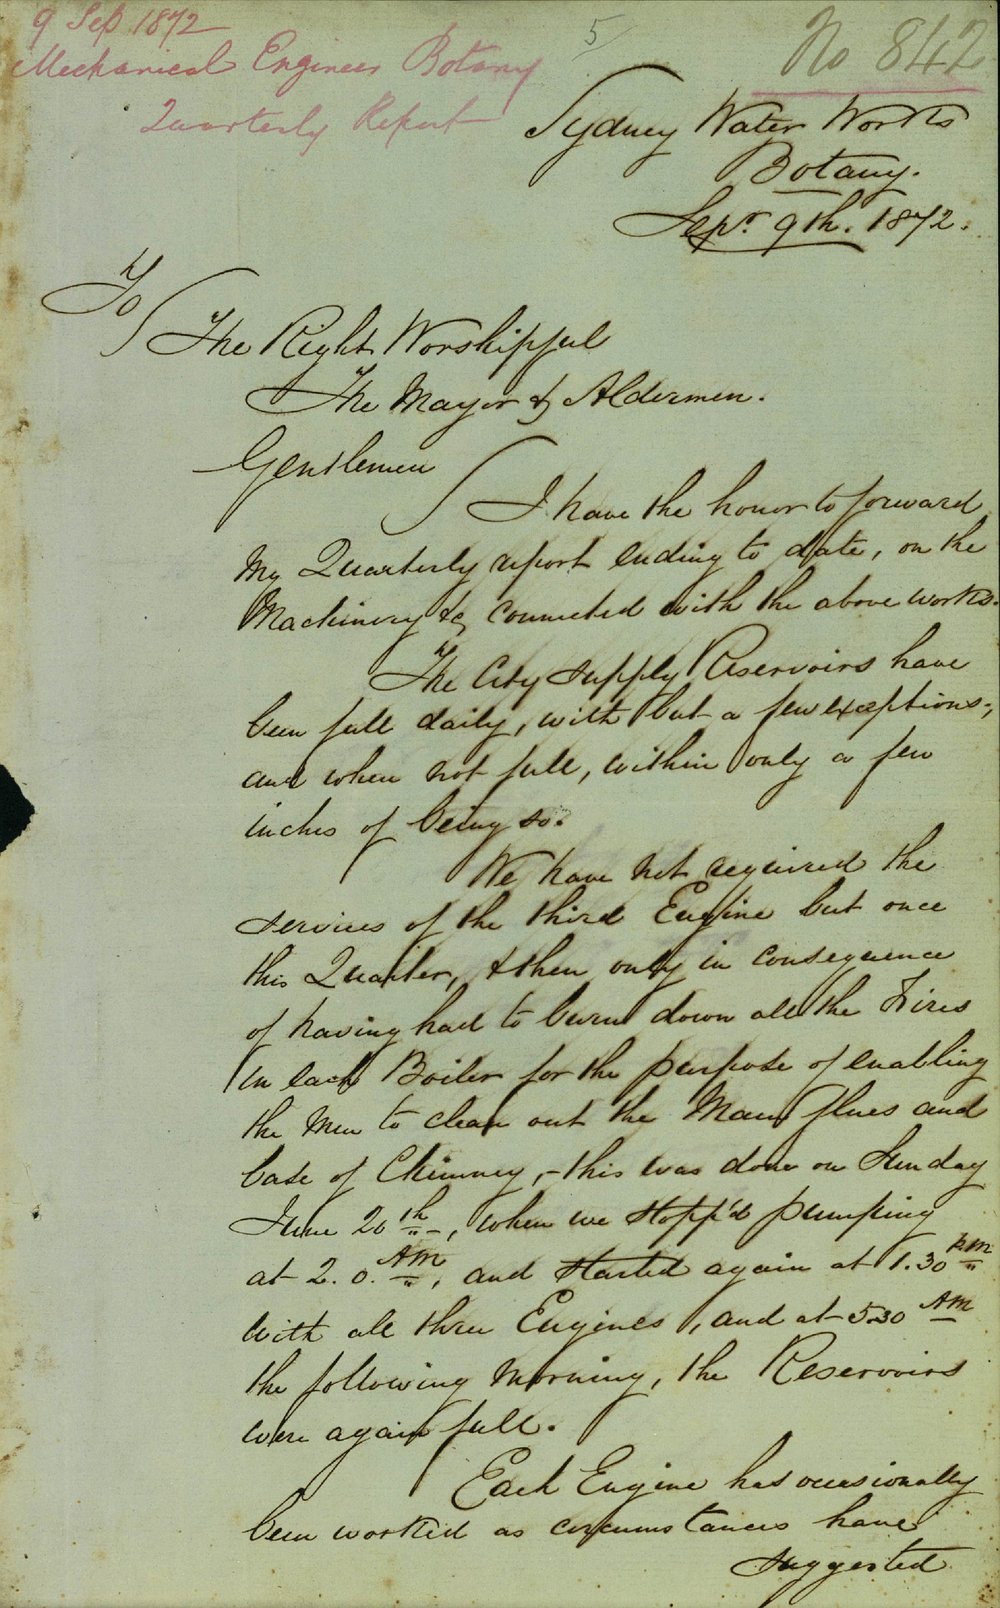 9 Sep 1872
Mechanical Engineer Botany
Quarterly Report
5
No 842
Sydney Water Works
Botany.
Sepr 9th. 1872.
To
The Right Worshipful
The Mayor & Aldermen.
Gentlemen
I have the honor to forward
My Quarterly report ending to date, on the
Machinery &c, connected with the above works.
The City supply Reservoirs have
been full daily, with but a few exceptions;
and when not full, within only a few
inches of being so.
We have not required the
services of the third Engine but once
this Quarter, & then only in consequence
of having had to burn down all the Fires
in each Boiler for the purpose of enabling
the Men to clean out the Main flues and
base of Chimney, - this was done on Sunday
June 20th -, when we stopp'd pumping
at 2.0. AM, and started again at 1.30 PM
with all three Engines, and at 5.30 AM
the following Morning, the Reservoirs
were again full.
Each Engine has occasionally
been worked as circumstances have
suggested